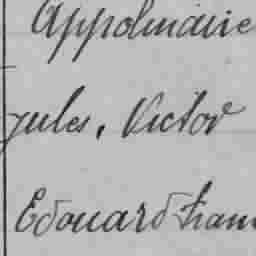 Appolinaire
Jules, Victor
Edouard Fran